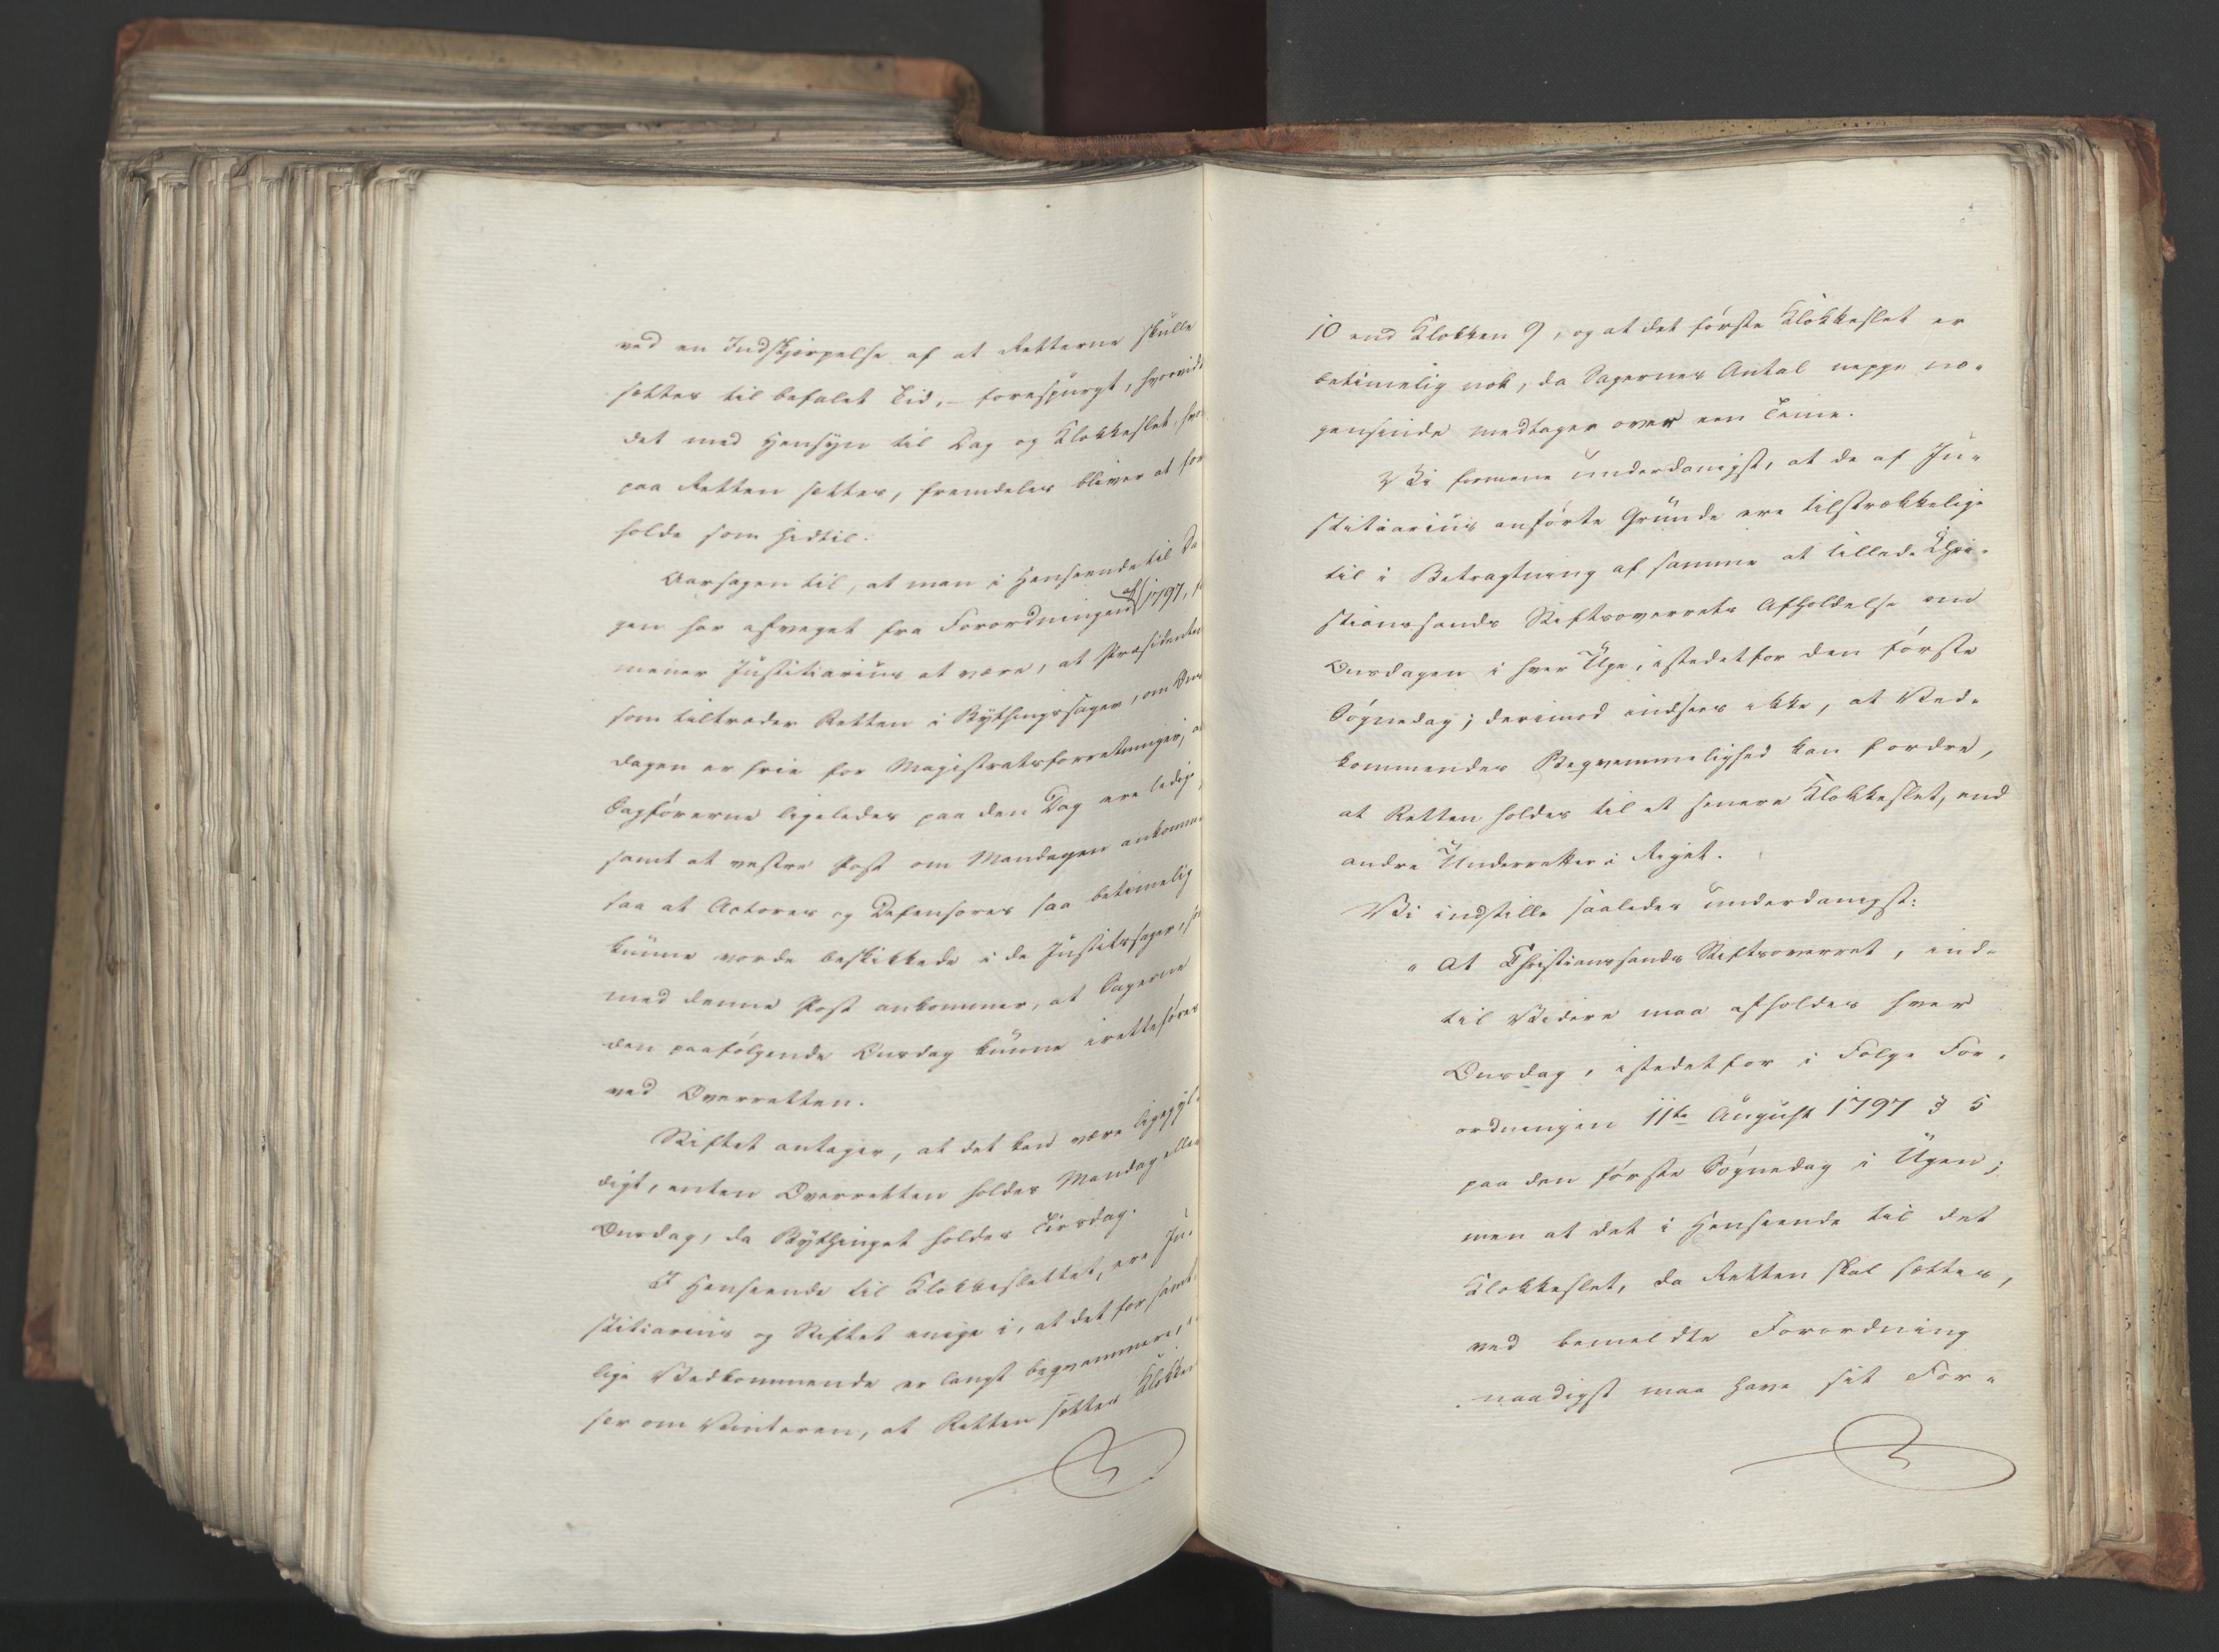 ved en Indskjerpelse af at Retterne skulle
settes til befalet Tid, – forespurgt, hvorvidt
det med Hensyn til Dag og Klokkeslet, hvor
paa Retten settes, fremdeles bliver at for
holde som hidtil.
Aarsagen til, at man i Henseende til Da
gen har afveget fra Forordningen af 1797,
mener Justitiarius at være, at Præsidenten
som tiltræder Retten i Bythingssager, om Ons
dagen er frie for Magistratsforretninger, at
Sagførerne ligeledes paa den Dag ere ledige,
samt at vestre Post om Mandagen ankommer
saa at Actores og Defensores saa betimelig
kunne vorde beskikkede i de Justitssager,
med denne Post ankommer, at Sagerne
den paafølgende Onsdag kunne iretteføres
ved Overretten.
Stiftet antager, at det kan være ligegyl-
digt, enten Overretten holdes Mandag eller
Onsdag, da Bythinget holdes Tirsdag.
I Henseende til Klokkeslettet, ere Ju-
stitiarius og Stiftet enige i, at det for samt-
lige Vedkommende er langt beqvemmere,
ser om Vinteren, at Retten settes Klokken
10 end Klokken 9, og at det første Klokkeslet er
betimelig nok, da Sagernes Antal neppe no-
gensinde medtager over een Time.
Vi formene underdanigst, at de af Ju-
stitiarius anførte Grunde ere tilstrækkelige
til i Betragtning af samme at tillade Chri-
stianssands Stiftsoverrets Afholdelse om
Onsdagen i hver Uge, istedetfor den første
Søgnedag; derimod indsees ikke, at Ved-
kommendes Beqvemmelighed kan fordre,
at Retten holdes til et senere Klokkeslet, end
andre Underretter i Riget.
Vi indstille saaledes underdanigst:
" At Christianssands Stiftsoverret, ind-
til Videre maa afholdes hver
Onsdag, istedetfor i Følge For-
ordningen 11te August 1797 § 5
paa den første Søgnedag i Ugen;
men at det i Henseende til det
Klokkeslet, da Retten skal sættes,
ved bemeldte Forordning
naadigst maa have sit For-